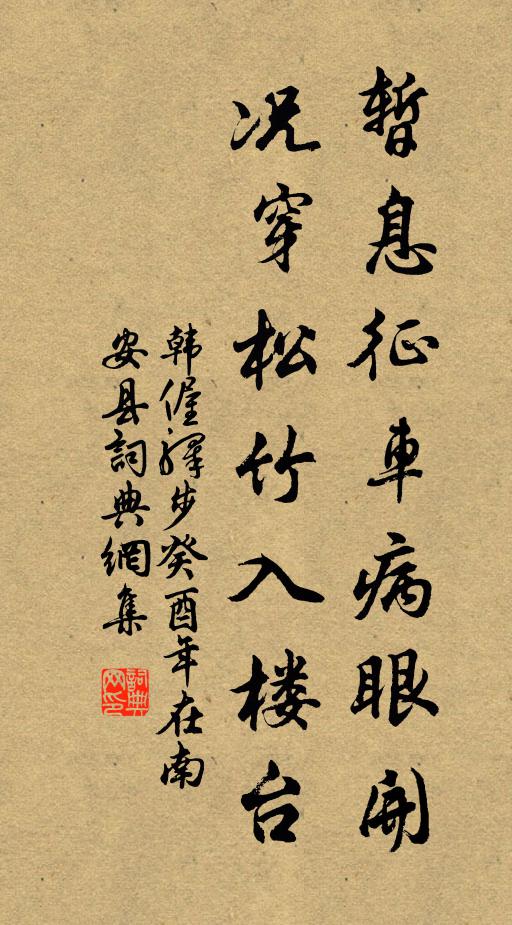 暂息征车病眼開
况穿松竹入楼台
韩偓驿步癸酉年在南
安县詞典網集
詞典网印